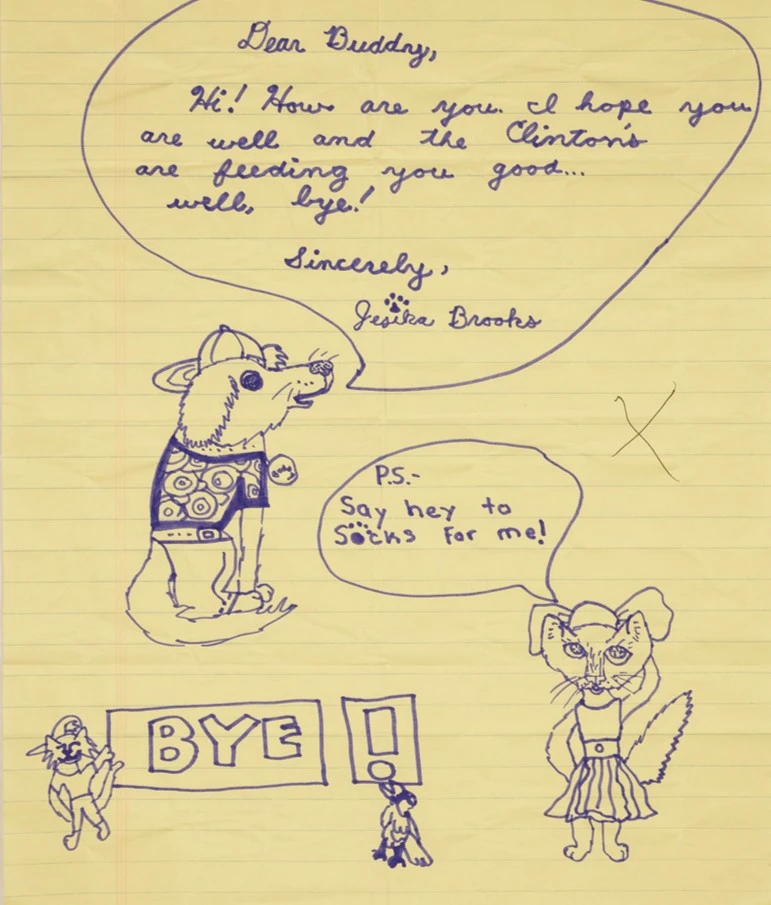 Dear Buddy,
Hi! How are you. I hope you
are well and the Clinton's
are feeding you good...
well, bye!
Sincerely,
Jesika Brooks
P.S.-
Say hey to
Socks for me!
BYE!
X